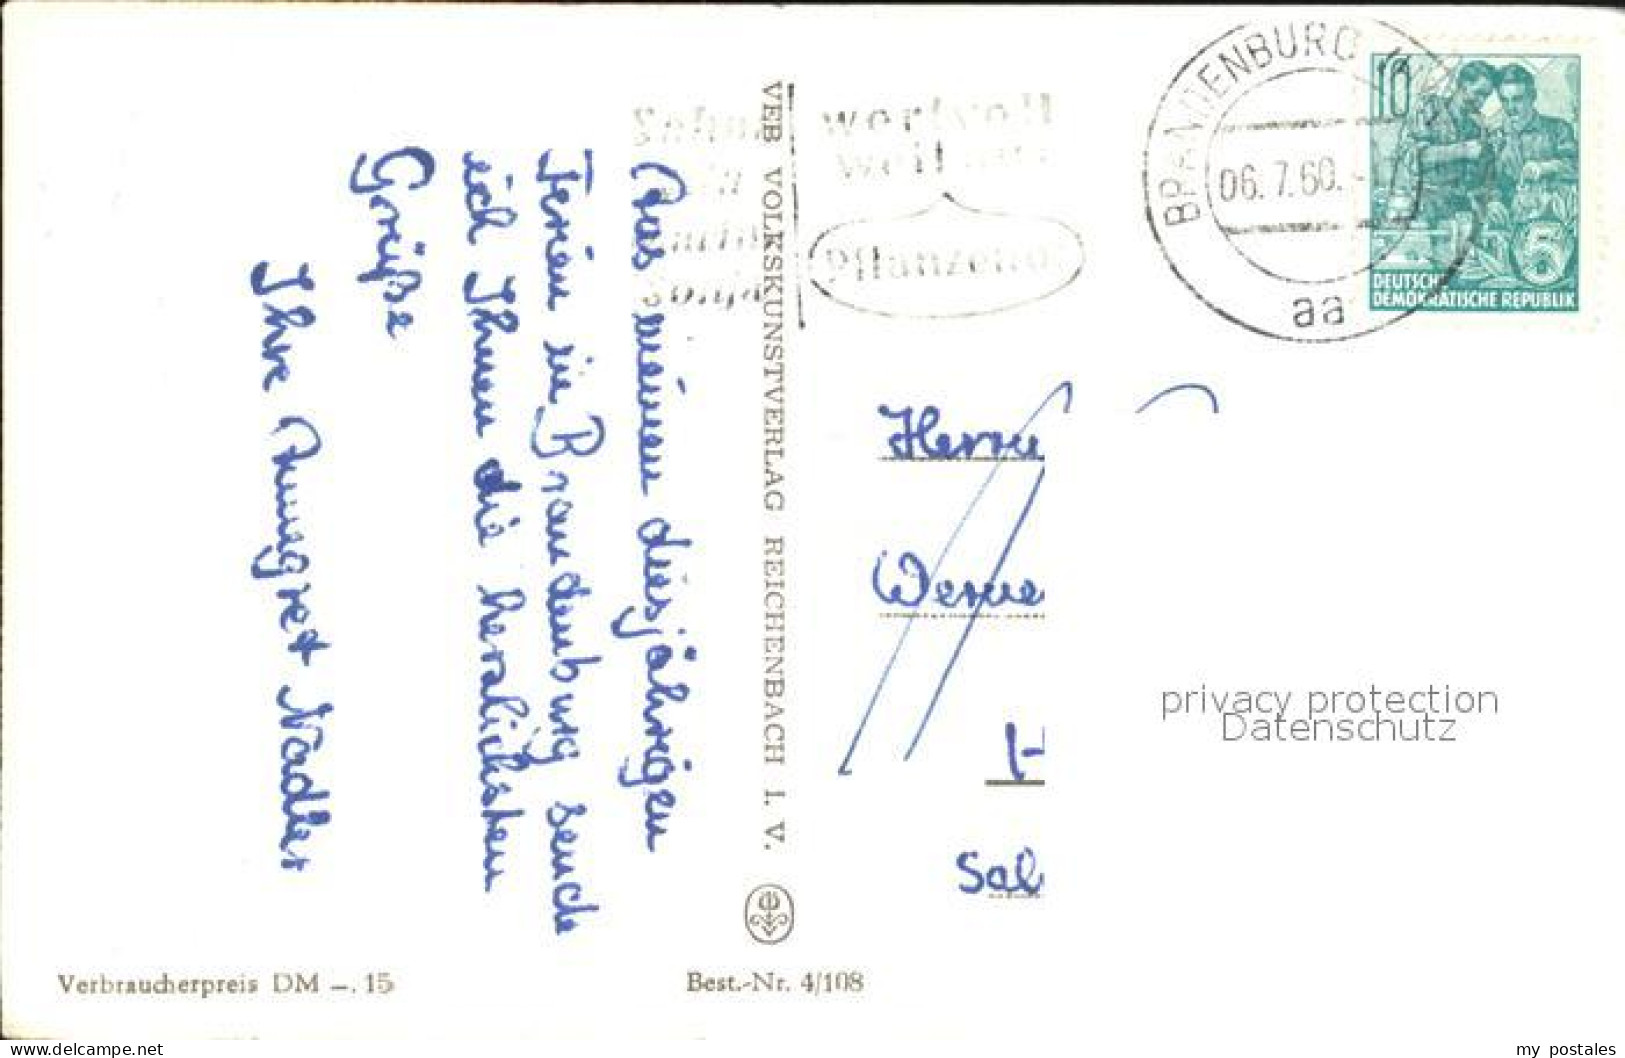 Aus meinen diesjährigen
Ferien in Brandenburg sende
ich Ihnen die herzlichsten
Grüße
Ihre Anngret Nadler
VEB VOLKSKUNSTVERLAG REICHENBACH I. V.
wertvoll
weil
BRANDENBURG
06.7.60.
aa
10
5
DEUTSCHE
DEMOKRATISCHE REPUBLIK
Herrn
Werne
H
Sal
privacy protection
Datenschutz
Verbraucherpreis DM –.15
Best.-Nr. 4/108
my_postales
delcampe.net